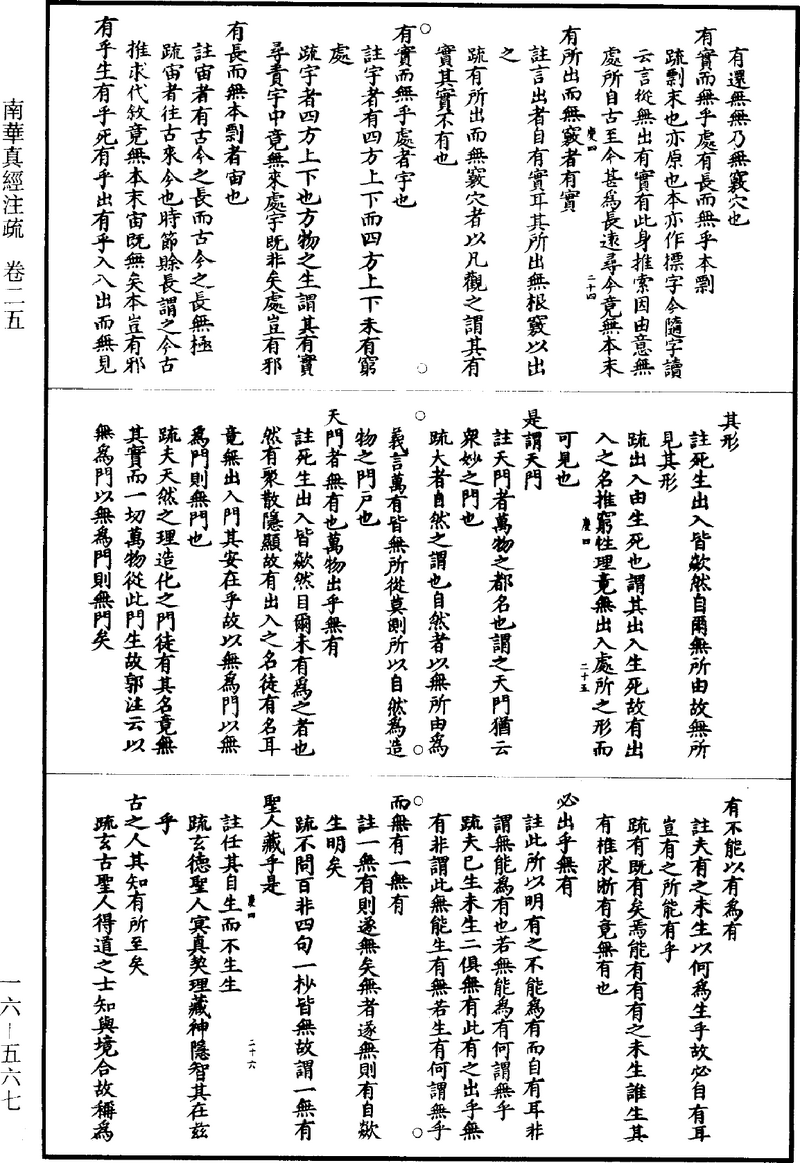 有還無無乃無竅穴也
有實而無乎處有長而無乎本剽
疏剽末也亦原也本亦作摽字今隨字讀
云言從無出有實有此身推索因由意無
處所自古至今甚爲長遠尋今竟無本末
慶四 二十四
有所出而無竅者有實
註言出者自有實耳其所出無根竅以出
之
疏有所出而無竅穴者以凡觀之謂其有
實其實不有也
有實而無乎處者宇也
註宇者有四方上下而四方上下未有窮
處
疏宇者四方上下也方物之生謂其有實
尋責宇中竟無來處宇既非矣處豈有邪
有長而無本剽者宙也
註宙者有古今之長而古今之長無極
疏宙者往古來今也時節賒長謂之今古
推求代敘竟無本末宙既無矣本豈有邪
有乎生有乎死有乎出有乎入入出而無見
其形
註死生出入皆欻然自爾無所由故無所
見其形
疏出入由生死也謂其出入生死故有出
入之名推窮性理竟無出入處所之形而
慶四 二十五
可見也
是謂天門
註天門者萬物之都名也謂之天門猶云
衆妙之門也
疏大者自然之謂也自然者以無所由爲
義言萬有皆無所從莫測所以自然爲造
物之門戶也
天門者無有也萬物出乎無有
註死生出入皆欻然目爾未有爲之者也
然有聚散隱顯故有出入之名徒有名耳
竟無出入門其安在乎故以無爲門以無
爲門則無門也
疏夫天然之理造化之門徒有其名竟無
其實而一切萬物從此門生故郭注云以
無爲門以無爲門則無門矣
有不能以有爲有
註夫有之未生以何爲生乎故必自有耳
豈有之所能有乎
疏有既有矣焉能有有有之未生誰生其
有推求斯有竟無有也
必出乎無有
註此所以明有之不能爲有而自有耳非
謂無能爲有也若無能爲有何謂無乎
疏夫已生未生二俱無有此有之出乎無
有非謂此無能生有無若生有何謂無乎
而無有一無有
註一無有則遂無矣無者遂無則有自欻
生明矣
疏不問百非四句一杪皆無故謂一無有
聖人藏乎是
慶四 二十六
註任其自生而不生生
疏玄德聖人冥真契理藏神隱智其在茲
乎
古之人其知有所至矣
疏玄古聖人得道之士知與境合故稱爲
南華真經注疏 卷二五
一六—五六七